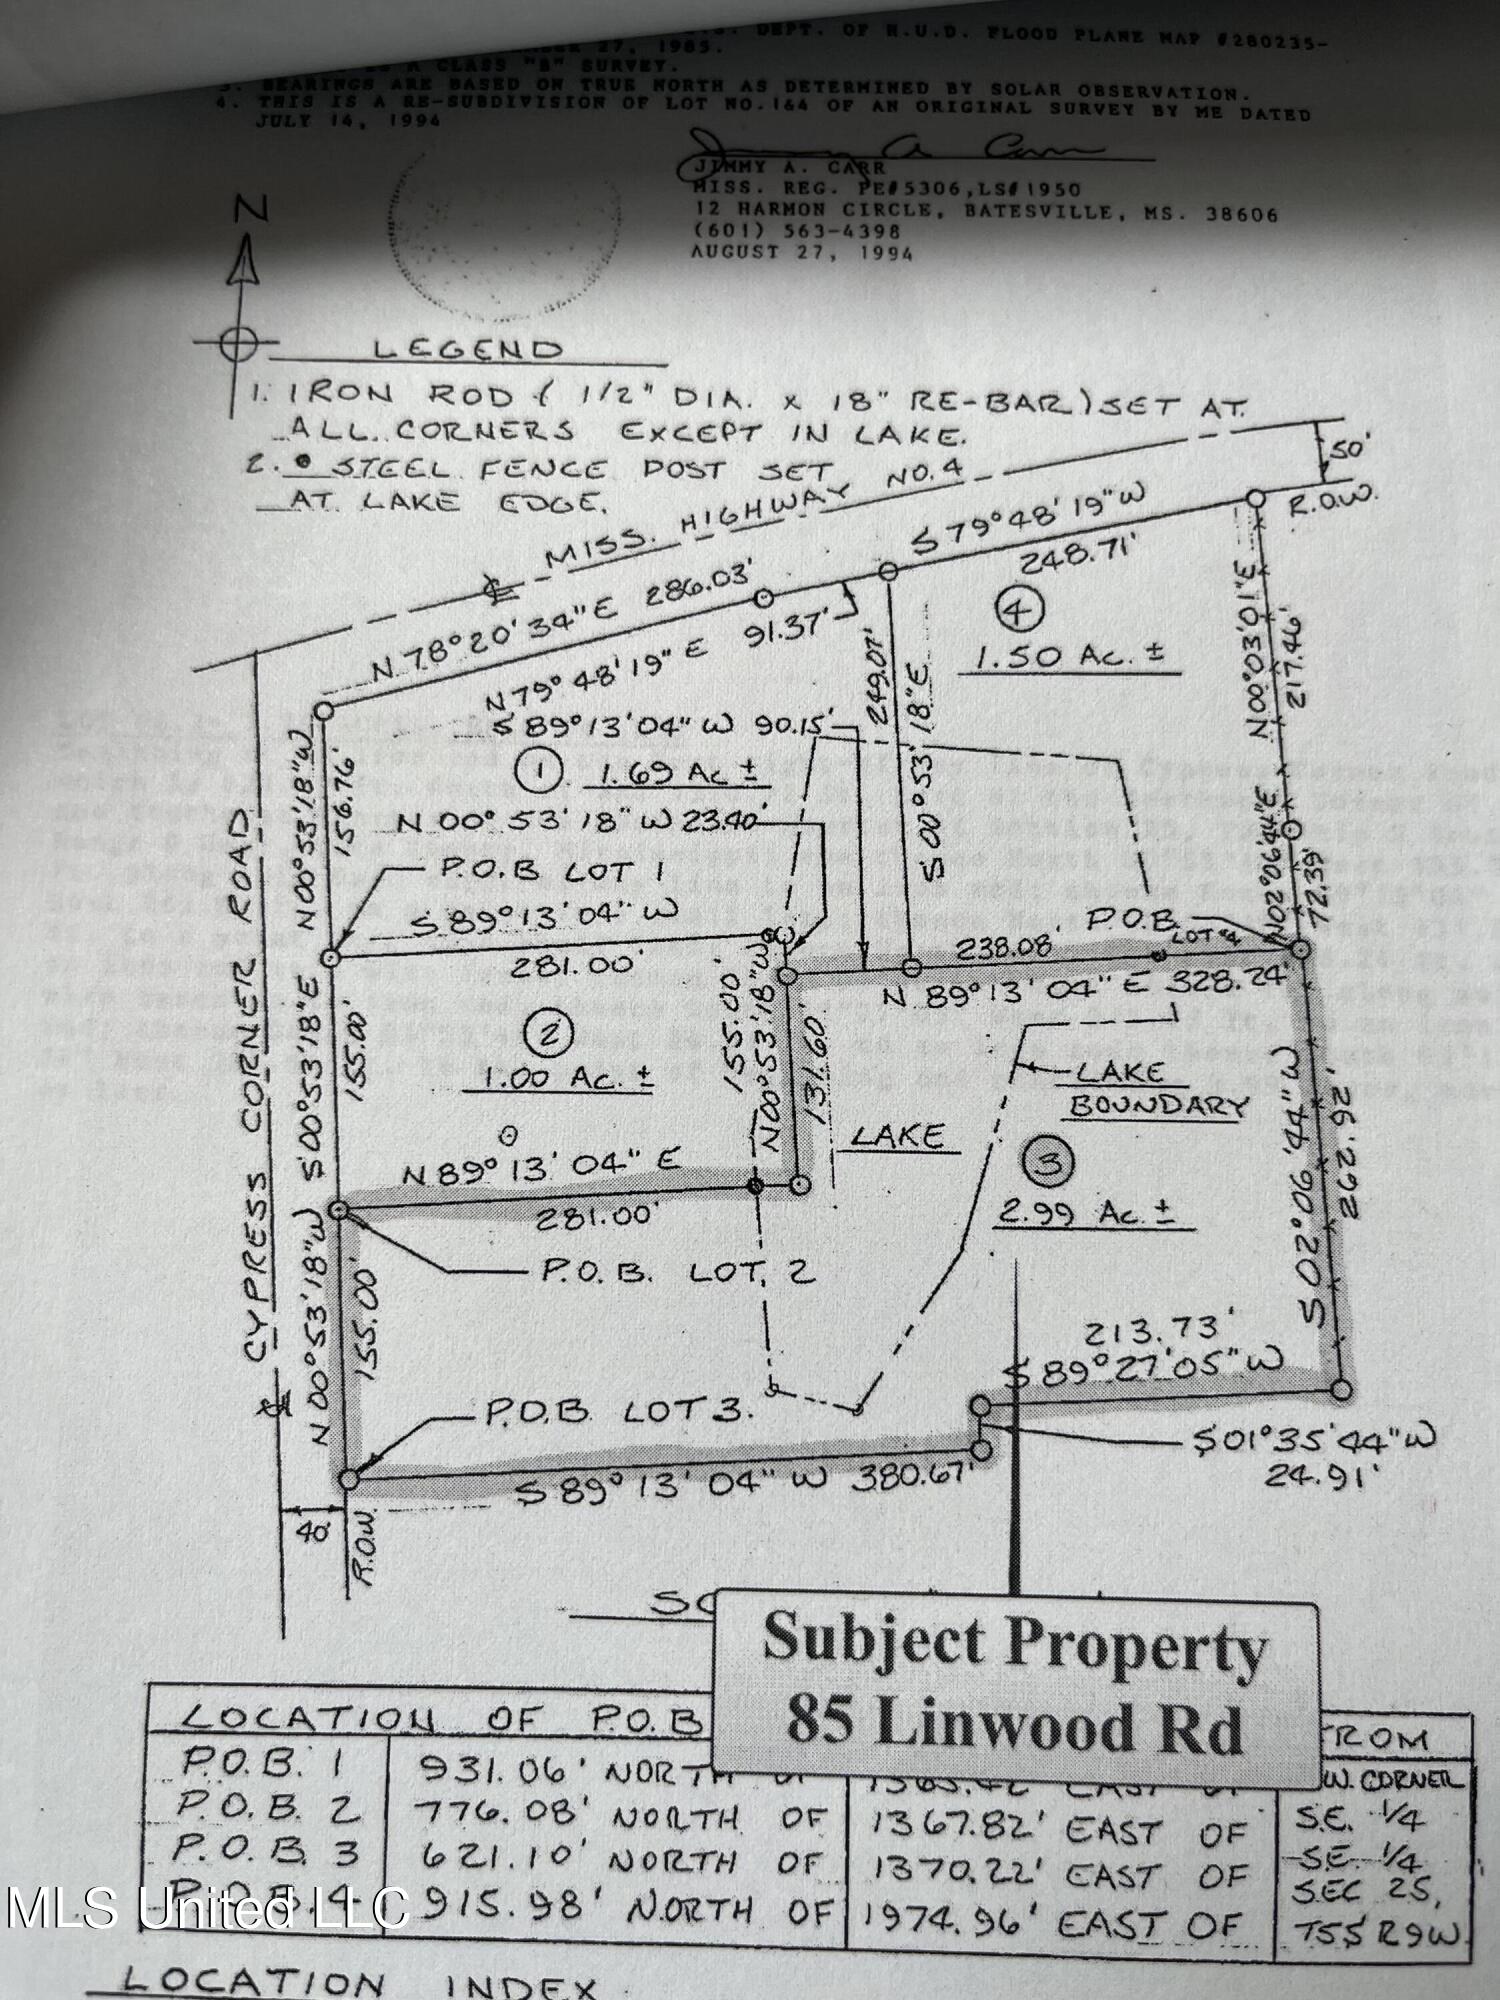 DEPT. OF H.U.D. FLOOD PLANE MAP #280235-
27, 1985.
A CLASS "B" SURVEY.
3. BEARINGS ARE BASED ON TRUE NORTH AS DETERMINED BY SOLAR OBSERVATION.
4. THIS IS A RE-SUBDIVISION OF LOT NO.164 OF AN ORIGINAL SURVEY BY ME DATED
JULY 14, 1994
Jimmy A. Carr
JIMMY A. CARR
MISS. REG. PE#5306,LS#1950
12 HARMON CIRCLE, BATESVILLE, MS. 38606
(601) 563-4398
AUGUST 27, 1994
N
LEGEND
1. IRON ROD ( 1/2" DIA. x 18" RE-BAR) SET AT
ALL CORNERS EXCEPT IN LAKE.
2. STEEL FENCE POST SET
AT LAKE EDGE.
MISS. HIGHWAY NO.4
50'
R.O.W.
S 79°48'19" W
248.71'
N 78°20'34" E 286.03'
N 79°48'19" E 91.37'
4
1.50 Ac. ±
249.07'
S 00°53'18" E
N 00°03'01" E
217.46'
S 89°13'04" W 90.15'
1 1.69 Ac ±
N 00°53'18" W 23.40'
N 00°53'18" W
156.76'
P.O.B LOT 1
N 02°06'44" E
72.39'
S 89°13'04" W
281.00'
P.O.B. LOT #4
238.08'
N 89°13'04" E 328.24'
CYPRESS CORNER ROAD
S 00°53'18" E
155.00'
2
1.00 Ac. ±
155.00'
N 00°53'18" W
131.60'
LAKE BOUNDARY
LAKE
3
2.99 Ac. ±
S 02°06'44" W
262.92'
N 89°13'04" E
281.00'
P.O.B. LOT. 2
N 00°53'18" W
155.00'
213.73'
S 89°27'05" W
P.O.B. LOT 3.
S 01°35'44" W
24.91'
S 89°13'04" W 380.67'
40'
R.O.W.
Subject Property
85 Linwood Rd
LOCATION OF P.O.B FROM
P.O.B. 1 931.06' NORTH OF 1365.42' EAST OF W. CORNER
P.O.B. 2 776.08' NORTH OF 1367.82' EAST OF S.E. 1/4
P.O.B. 3 621.10' NORTH OF 1370.22' EAST OF S.E. 1/4
P.O.B. 4 915.98' NORTH OF 1974.96' EAST OF SEC 25,
T5S R9W.
MLS United LLC
LOCATION INDEX